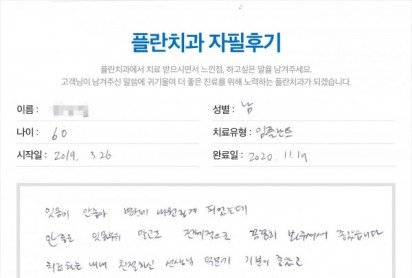 플란치과 자필후기
플란치과에서 치료 받으시면서 느낀점, 하고싶은 말을 남겨주세요.
고객님이 남겨주신 말씀에 귀기울여 더 좋은 진료를 위해 노력하는 플란치과가 되겠습니다.
이름 : 성별 : 남
나이 : 60 치료유형 : 임플란트
시작일 : 2019. 3.26 완료일 : 2020. 11.19
잇몸이 안좋아 병원에 내원하게 되었는데
안좋은 잇몸뿐만 말고도 전체적으로 꼼꼼히 봐주셔서 좋았습니다
치료하는 내내 친절하신 선생님 덕분에 기분이 좋았고